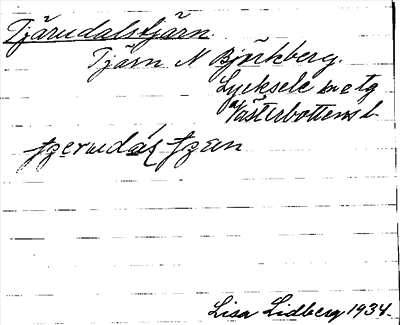 Tjärudalstjärn.
Tjärn N Björkberg.
Lycksele
Västerbottens l.
Lisa Lidberg 1934.